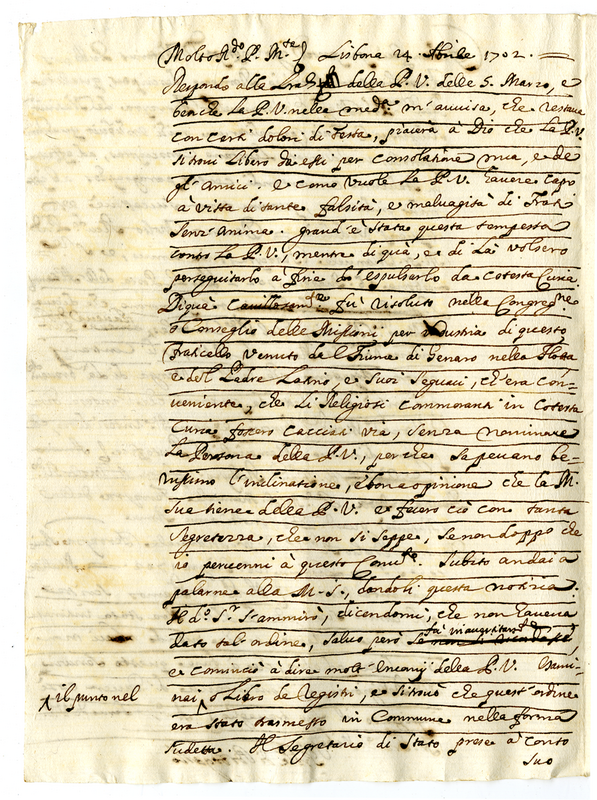 Molto R.do P. M.re Lisbona 24 Aprile 1702.
Rispondo alla della P. V. delle 5. Marzo, e
benche la P. V. nella med.a m'auuisa, che restaua
con certi dolori di testa, piacerà à Dio che la P. V.
si troui libero da essi per consolatione mia, e de
gl'Amici. e come vuole la P. V. hauere capo
à vista di tante falsità, e maluagità di Frati
senz'anima. grand'è stata questa tempesta
contro la P. V., mentre di quà, e di là volsero
perseguitarlo à fine d'espulsarlo da cotesta Curia.
Di quà fù risoluto nella Congreg.ne
ò Conseglio delle Missioni per industria di questo
Fraticello venuto dal Fiume di Genaro nella Flotta
e del Padre Latino, e suoi seguaci, ch'era con-
ueniente, che li Religiosi commoranti in cotesta
Curia fossero cacciati via, senza nominare
la Persona della P. V., perche sapeuano be-
nissimo l'inclinatione, e bona opinione che la M.
Sua tiene della P. V. e fecero ciò con tanta
segretezza, che non si seppe, se non doppo che
io peruenni à questo Conu.to. Subito andai a
parlarne alla M. S., dandoli questa notizia.
Il d.o S.r s'ammirò, dicendomi, che non haueua
dato tal'ordine, saluo però se
e cominciò à dire molt'encomij della P. V. Esami-
nai, o Libro de Registri, e si trouò che quest'ordine
il punto nel
era stato trasmesso in Commune nella forma
sudetta. Il Segretario di Stato prese à conto
suo